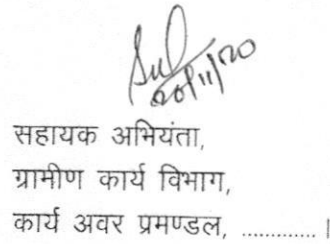 20/11/20
सहायक अभियंता,
ग्रामीण कार्य विभाग,
कार्य अवर प्रमण्डल, ............ ।